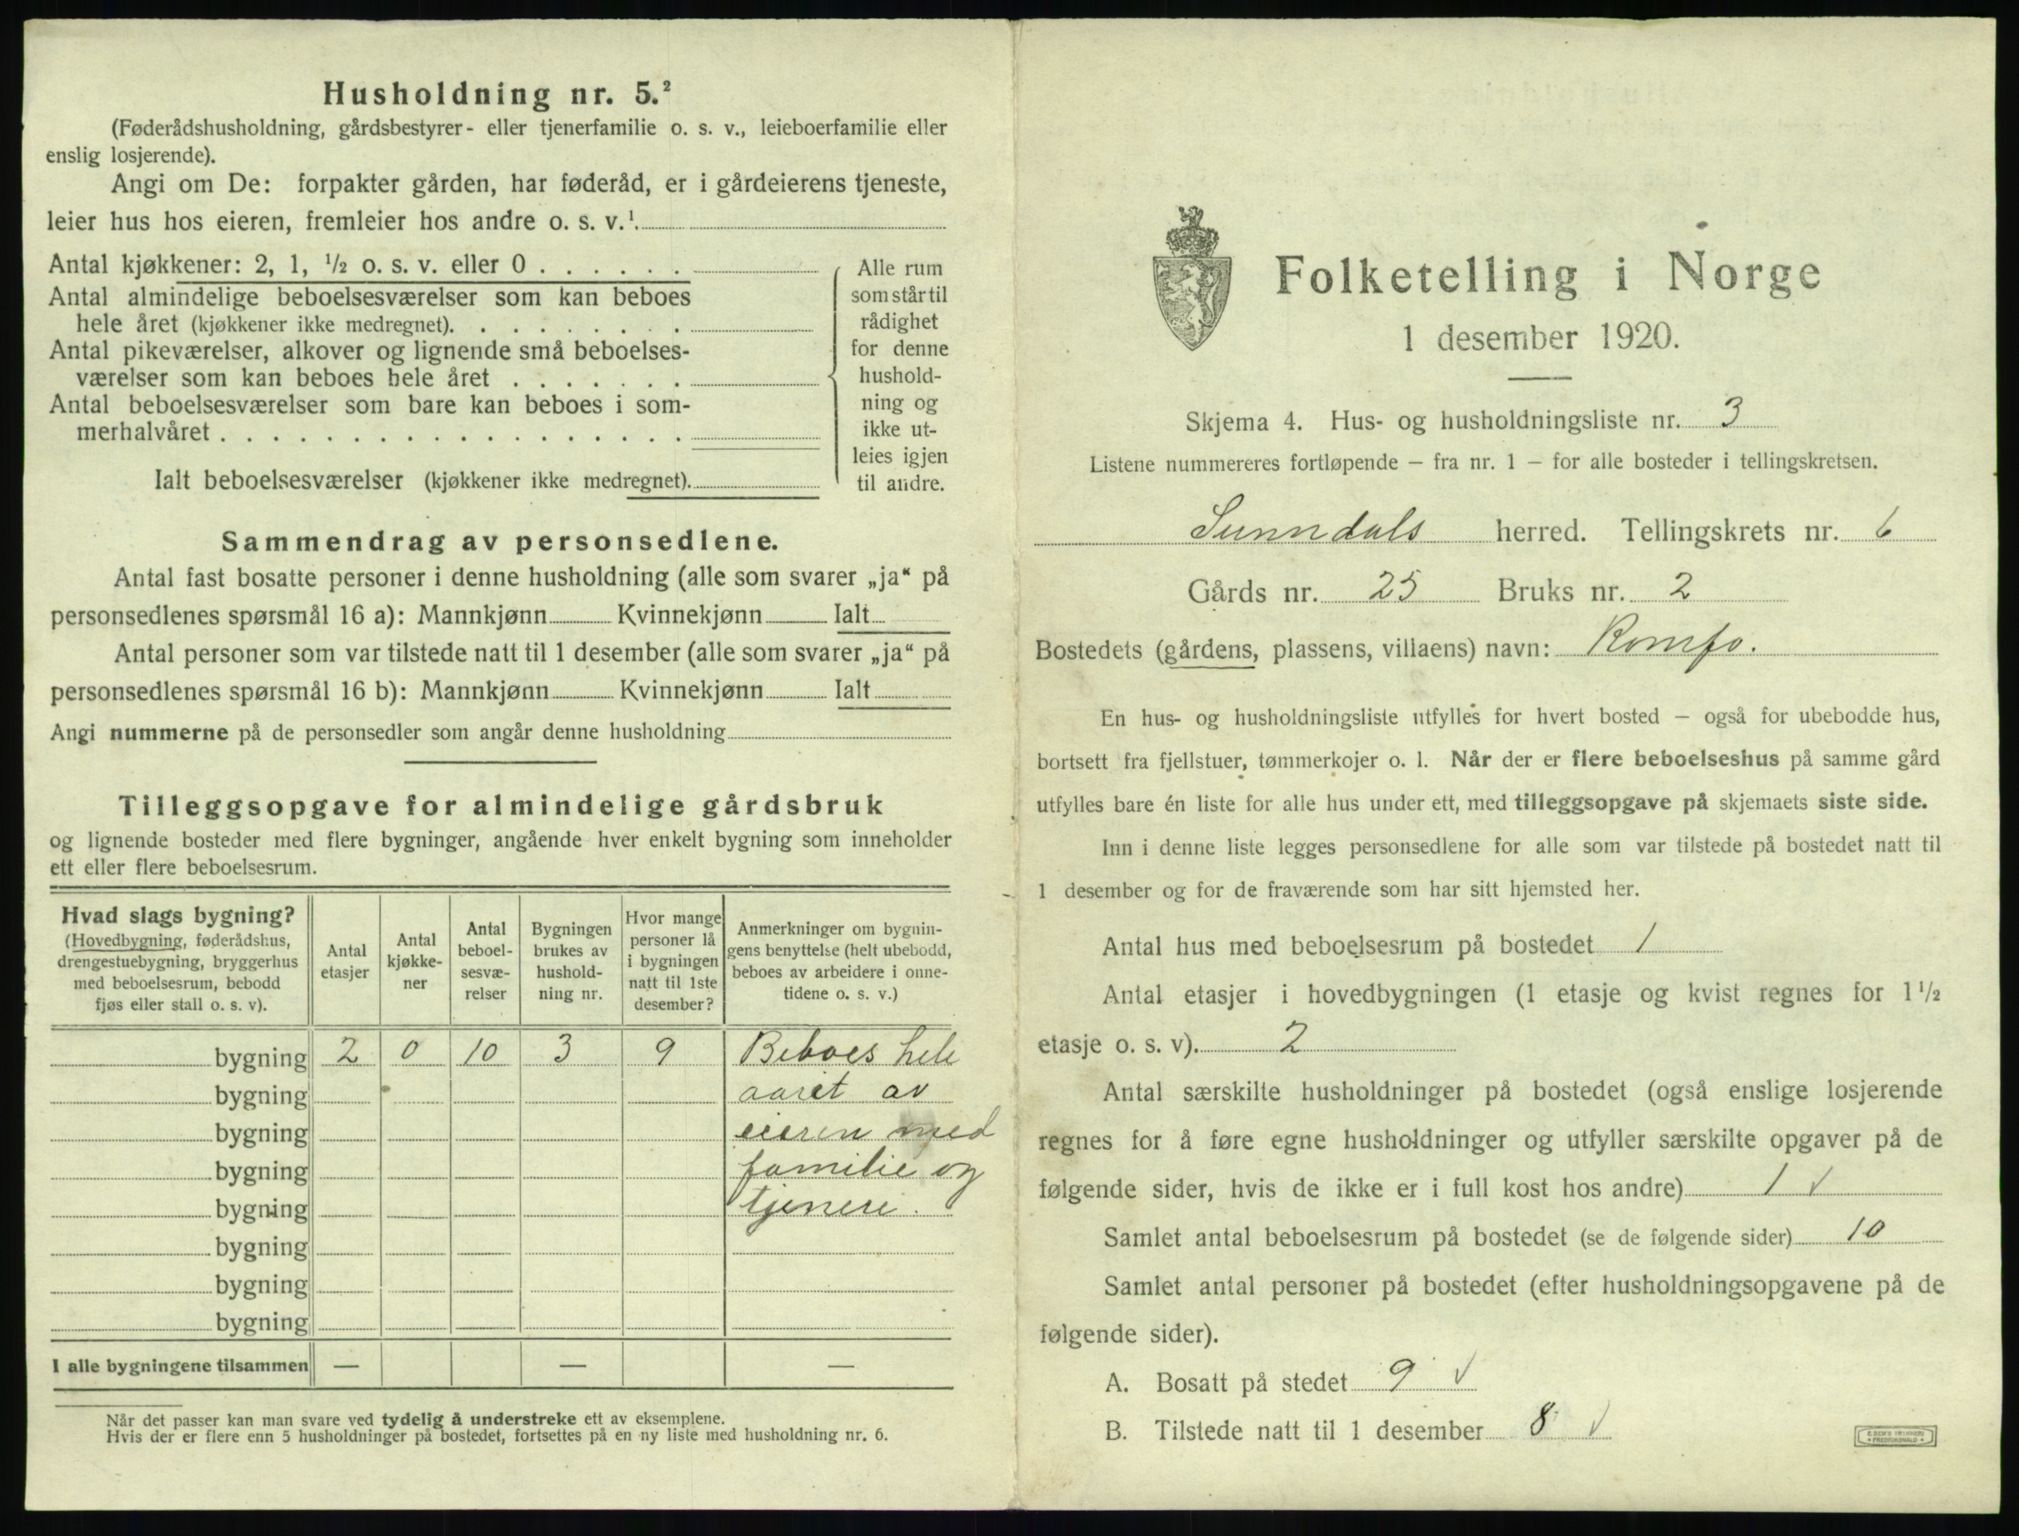 Husholdning nr. 5.²
(Føderådshusholdning, gårdsbestyrer- eller tjenerfamilie o. s. v., leieboerfamilie eller
enslig losjerende).
Angi om De: forpakter gården, har føderåd, er i gårdeierens tjeneste,
leier hus hos eieren, fremleier hos andre o. s. v.¹
Antal kjøkkener: 2, 1, ½ o. s. v. eller 0 . . . . . .
Antal almindelige beboelsesværelser som kan beboes
hele året (kjøkkener ikke medregnet). . . . . . . . .
Antal pikeværelser, alkover og lignende små beboelses-
værelser som kan beboes hele året . . . . . . .
Antal beboelsesværelser som bare kan beboes i som-
merhalvåret . . . . . . . . . . . . . . . . . .
Ialt beboelsesværelser (kjøkkener ikke medregnet).
Alle rum
som står til
rådighet
for denne
hushold-
ning og
ikke ut-
leies igjen
til andre.
Sammendrag av personsedlene.
Antal fast bosatte personer i denne husholdning (alle som svarer „ja“ på
personsedlenes spørsmål 16 a): Mannkjønn Kvinnekjønn Ialt
Antal personer som var tilstede natt til 1 desember (alle som svarer „ja“ på
personsedlenes spørsmål 16 b): Mannkjønn Kvinnekjønn Ialt
Angi nummerne på de personsedler som angår denne husholdning
Tilleggsopgave for almindelige gårdsbruk
og lignende bosteder med flere bygninger, angående hver enkelt bygning som inneholder
ett eller flere beboelsesrum.
Hvad slags bygning?
(Hovedbygning, føderådshus,
drengestuebygning, bryggerhus
med beboelsesrum, bebodd
fjøs eller stall o. s. v).
Antal
etasjer
Antal
kjøkke-
ner
Antal
beboel-
sesvæ-
relser
Bygningen
brukes av
hushold-
ning nr.
Hvor mange
personer lå
i bygningen
natt til 1ste
desember?
Anmerkninger om bygnin-
gens benyttelse (helt ubebodd,
beboes av arbeidere i onne-
tidene o. s. v.)
bygning 2 0 10 3 9 Beboes hele
bygning aaret av
bygning eieren med
bygning familie og
bygning tjenere.
bygning
bygning
bygning
I alle bygningene tilsammen — — —
Når det passer kan man svare ved tydelig å understreke ett av eksemplene.
Hvis der er flere enn 5 husholdninger på bostedet, fortsettes på en ny liste med husholdning nr. 6.
Folketelling i Norge
1 desember 1920.
Skjema 4. Hus- og husholdningsliste nr. 3
Listene nummereres fortløpende – fra nr. 1 – for alle bosteder i tellingskretsen.
Sunndals herred. Tellingskrets nr. 6
Gårds nr. 25 Bruks nr. 2
Bostedets (gårdens, plassens, villaens) navn: Romfo.
En hus- og husholdningsliste utfylles for hvert bosted – også for ubebodde hus,
bortsett fra fjellstuer, tømmerkojer o. l. Når der er flere beboelseshus på samme gård
utfylles bare én liste for alle hus under ett, med tilleggsopgave på skjemaets siste side.
Inn i denne liste legges personsedlene for alle som var tilstede på bostedet natt til
1 desember og for de fraværende som har sitt hjemsted her.
Antal hus med beboelsesrum på bostedet 1
Antal etasjer i hovedbygningen (1 etasje og kvist regnes for 1½
etasje o. s. v). 2
Antal særskilte husholdninger på bostedet (også enslige losjerende
regnes for å føre egne husholdninger og utfyller særskilte opgaver på de
følgende sider, hvis de ikke er i full kost hos andre) 1 √
Samlet antal beboelsesrum på bostedet (se de følgende sider) 10
Samlet antal personer på bostedet (efter husholdningsopgavene på de
følgende sider).
A. Bosatt på stedet 9 √
B. Tilstede natt til 1 desember 8 √